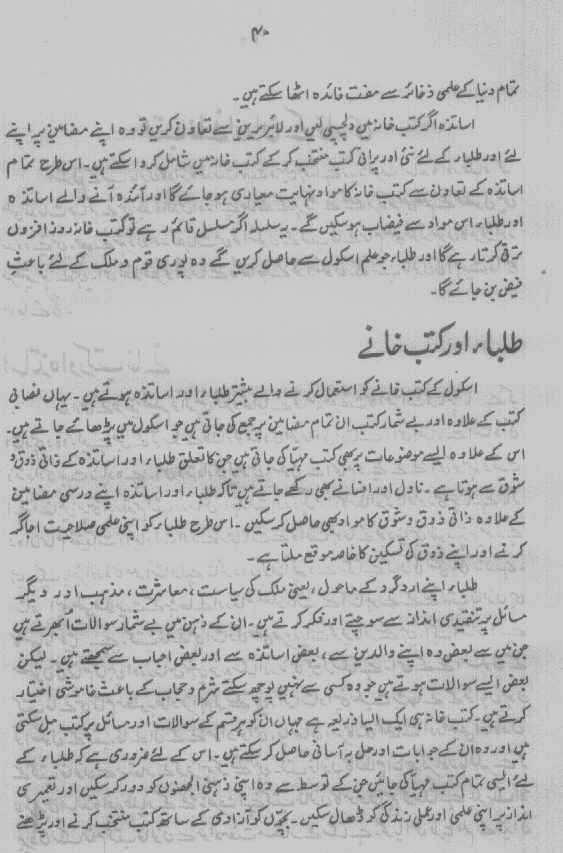 ۴۰
تمام دنیا کے علمی ذخائر سے مفت فائدہ اٹھا سکتے ہیں۔
اساتذہ اگر کتب خانہ میں دلچسپی لیں اور لائبریرین سے تعاون کریں تو وہ اپنے مضامین پر اپنے
لئے اور طلباء کے لئے نئی اور پرانی کتب منتخب کر کے کتب خانہ میں شامل کروا سکتے ہیں۔ اس طرح تمام
اساتذہ کے تعاون سے کتب خانہ کا مواد نہایت معیاری ہو جائے گا اور آئندہ آنے والے اساتذہ
اور طلباء اس مواد سے فیضاب ہو سکیں گے۔ یہ سلسلہ اگر مسلسل قائم رہے تو کتب خانہ روز افزوں
ترقی کرتا رہے گا اور طلباء جو علم اسکول سے حاصل کریں گے وہ پوری قوم و ملک کے لئے باعثِ
فیض بن جائے گا۔
طلباء اور کتب خانے
اسکول کے کتب خانے کو استعمال کرنے والے بیشتر طلباء اور اساتذہ ہوتے ہیں۔ یہاں نصابی
کتب کے علاوہ اور بے شمار کتب ان تمام مضامین پر جمع کی جاتی ہیں جو اسکول میں پڑھائے جاتے ہیں۔
اس کے علاوہ ایسے موضوعات پر بھی کتب مہیا کی جاتی ہیں جن کا تعلق طلباء اور اساتذہ کے ذاتی ذوق و
شوق سے ہوتا ہے۔ ناول اور افسانے بھی رکھے جاتے ہیں تاکہ طلباء اور اساتذہ اپنے درسی مضامین
کے علاوہ ذاتی ذوق و شوق کا مواد بھی حاصل کر سکیں۔ اس طرح طلباء کو اپنی علمی صلاحیت اجاگر
کرنے اور اپنے ذوق کی تسکین کا خاصہ موقع ملتا ہے۔
طلباء اپنے ارد گرد کے ماحول، یعنی ملک کی سیاست، معاشرت، مذہب اور دیگر
مسائل پر تنقیدی انداز سے سوچتے اور فکر کرتے ہیں۔ ان کے ذہن میں بے شمار سوالات ابھرتے ہیں
جن میں سے بعض وہ اپنے والدین سے، بعض اساتذہ سے اور بعض احباب سے سمجھتے ہیں۔ لیکن
بعض ایسے سوالات ہوتے ہیں جو وہ کسی سے نہیں پوچھ سکتے شرم و حجاب کے باعث خاموشی اختیار
کرتے ہیں۔ کتب خانہ ہی ایک ایسا ذریعہ ہے جہاں ان کو ہر قسم کے سوالات اور مسائل پر کتب مل سکتی
ہیں اور وہ ان کے جوابات اور حل بہ آسانی حاصل کر سکتے ہیں۔ اس کے لئے ضروری ہے کہ طلباء کے
لئے ایسی تمام کتب مہیا کی جائیں جن کے توسط سے وہ اپنی ذہنی الجھنوں کو دور کر سکیں اور تعمیری
انداز پر اپنی علمی اور عملی زندگی کو ڈھال سکیں۔ بچوں کو آزادی کے ساتھ کتب منتخب کرنے اور پڑھنے